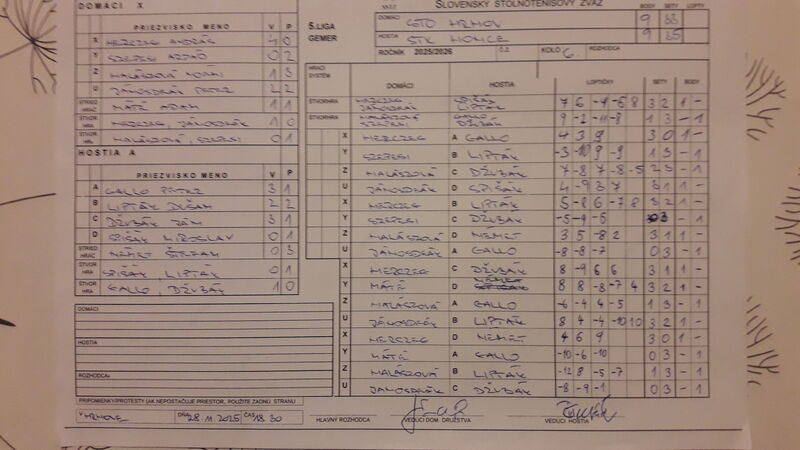 DOMÁCI X
PRIEZVISKO MENO V P
X HERCZEG ANDRÁS 4 0
Y SZEPESI 0 2
Z MALÁSZOVÁ 1 3
U JÁNOSDEÁK PETER 2 2
STRIED. HRÁČ MÁTÉ ADAM 1 1
ŠTVOR HRA HERCZEG, JÁNOSDEÁK 1 0
ŠTVOR HRA MALÁSZOVÁ, SZEPESI 0 1
HOSTIA A
PRIEZVISKO MENO V P
A GALLO PETER 3 1
B LIPTÁK DUŠAN 2 2
C DŽUBÁK JÁN 3 1
D SPIŠÁK MIROSLAV 0 1
STRIED. HRÁČ NÉMET ŠTEFAN 0 3
ŠTVOR HRA SPIŠÁK, LIPTÁK 0 1
ŠTVOR HRA GALLO, DŽUBÁK 1 0
DOMÁCI
HOSTIA
ROZHODCA
PRIPOMIENKY/PROTESTY (AK NEPOSTAČUJE PRIESTOR, POUŽITE ZADNÚ STRANU
V HRHOVE DŇA 28.11.2025 ČAS 18.30
SLOVENSKÝ STOLNOTENISOVÝ ZVÄZ
5.LIGA GEMER
BODY SETY LOPTY
DOMÁCI HRHOV 9 33
HOSTIA STK 9 35
ROČNÍK 2025/2026 Č.Z. KOLO 6. ROZHODCA
HRACÍ SYSTÉM DOMÁCI HOSTIA LOPTIČKY SETY BODY
ŠTVORHRA HERCZEG JÁNOSDEÁK SPIŠÁK LIPTÁK 7 6 -4 -5 8 3 2 1 -
ŠTVORHRA MALÁSZOVÁ SZEPESI GALLO DŽUBÁK 9 -2 -11 -8 1 3 - 1
X HERCZEG A GALLO 4 3 9 3 0 1 -
Y SZEPESI B LIPTÁK -3 -10 9 -9 1 3 - 1
Z MALÁSZOVÁ C DŽUBÁK 7 -8 7 -8 -5 2 3 - 1
U JÁNOSDEÁK D SPIŠÁK 4 -9 3 7 3 1 1 -
X HERCZEG B LIPTÁK 5 -8 6 -7 8 3 2 1 -
Y SZEPESI C DŽUBÁK -5 -9 -5 0 3 - 1
Z MALÁSZOVÁ D NÉMET 3 5 -8 2 3 1 1 -
U JÁNOSDEÁK A GALLO -8 -8 -7 0 3 - 1
X HERCZEG C DŽUBÁK 8 -9 6 6 3 1 1 -
Y MÁTÉ D NÉMET 8 8 -8 -7 4 3 2 1 -
Z MALÁSZOVÁ A GALLO -6 -4 4 -5 1 3 - 1
U JÁNOSDEÁK B LIPTÁK 8 4 -4 -10 10 3 2 1 -
X HERCZEG D NÉMET 4 6 9 3 0 1 -
Y MÁTÉ A GALLO -10 -6 -10 0 3 - 1
Z MALÁSZOVÁ B LIPTÁK -12 8 -5 -7 1 3 - 1
U JÁNOSDEÁK C DŽUBÁK -8 -9 -1 0 3 - 1
HLAVNÝ ROZHODCA VEDÚCI DOM. DRUŽSTVA VEDÚCI HOSTIA